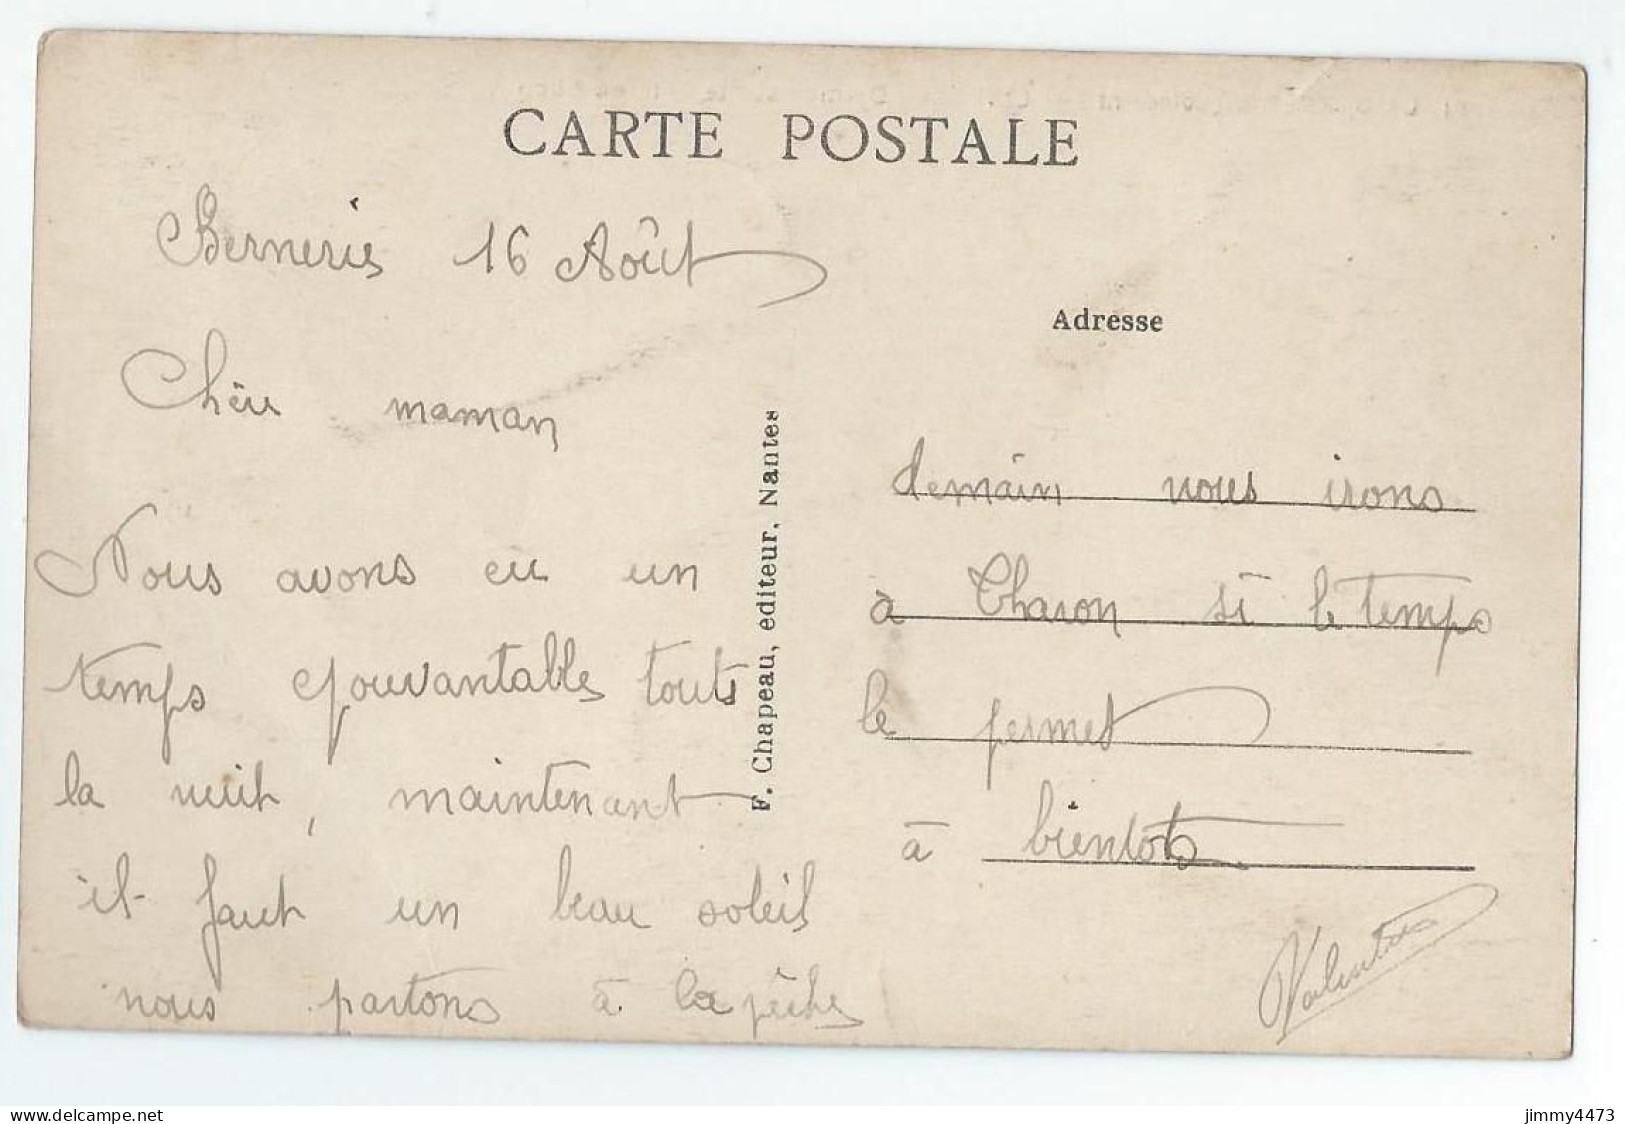 CARTE POSTALE
Bernerie 16 Août
Chère maman
Nous avons eu un
temps epouvantable touts
la nuit, maintenant
il faut un beau soleil
nous partons à la pêche
F. Chapeau, editeur, Nantes
Adresse
demain nous irons
à Tharon si le temps
le permet
à bientôt
www.delcampe.net
jimmy4473